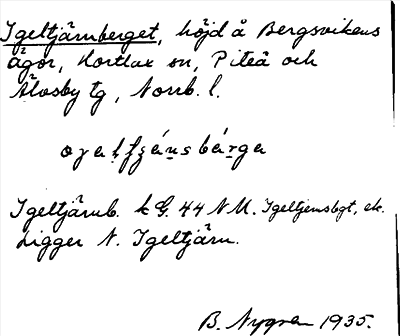 Igeltjärnberget, höjd å Bergsvikens
ägor, Hortlax sn, Piteå och
Älvsby tg, Norrb. l.
Igeltjärnb. k G. 44 NM. Igeltjernsbgt, ek.
Ligger N. Igeltjärn.
B. Nygren 1935.